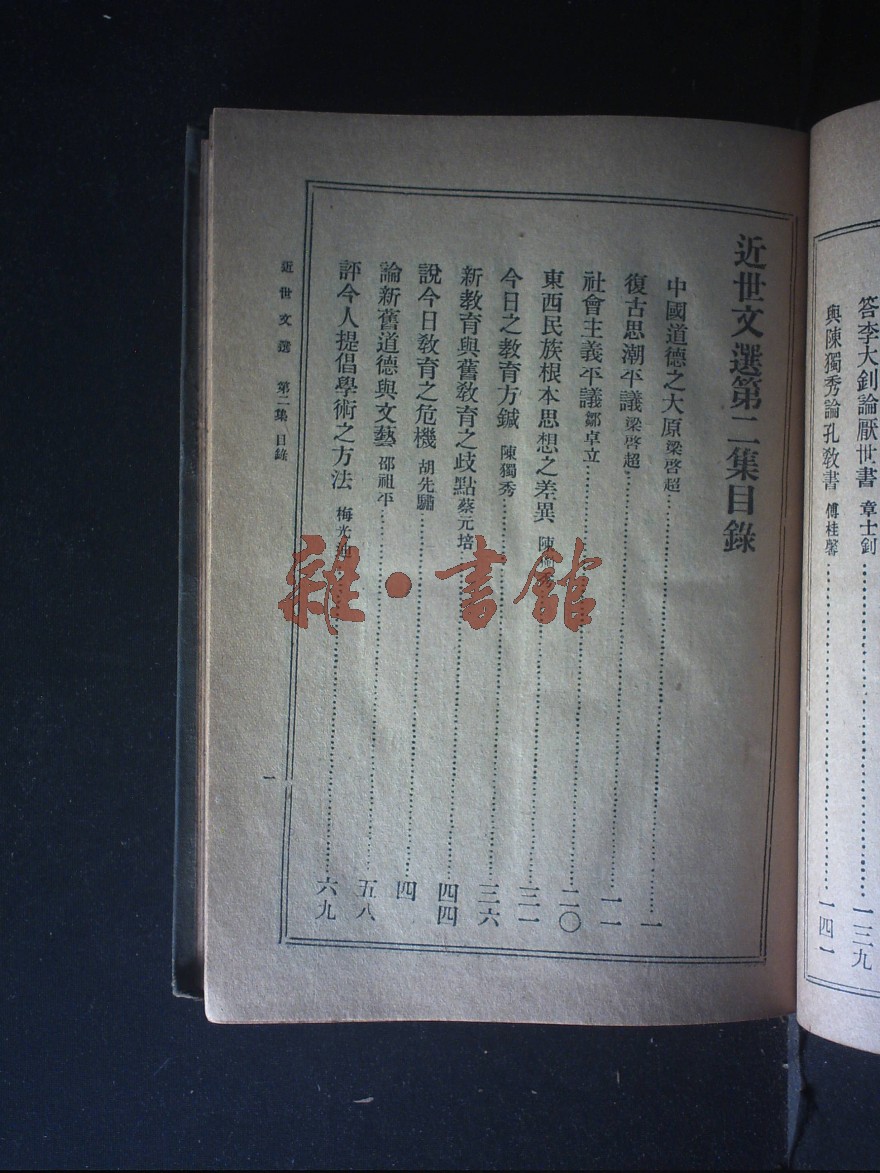 答李大釗論厭世書 章士釗 一三九
與陳獨秀論孔教書 傅桂馨 一四一
近世文選第二集目錄
中國道德之大原 梁啓超 一
復古思潮平議 梁啓超 一一
社會主義平議 鄒卓立 二〇
東西民族根本思想之差異 陳獨秀 三一
今日之教育方鍼 陳獨秀 三六
新教育與舊教育之歧點 蔡元培 四四
說今日教育之危機 胡先驌 四
論新舊道德與文藝 邵祖平 五八
評今人提倡學術之方法 梅光迪 六九
近世文選 第二集 目錄 一
雜·書館